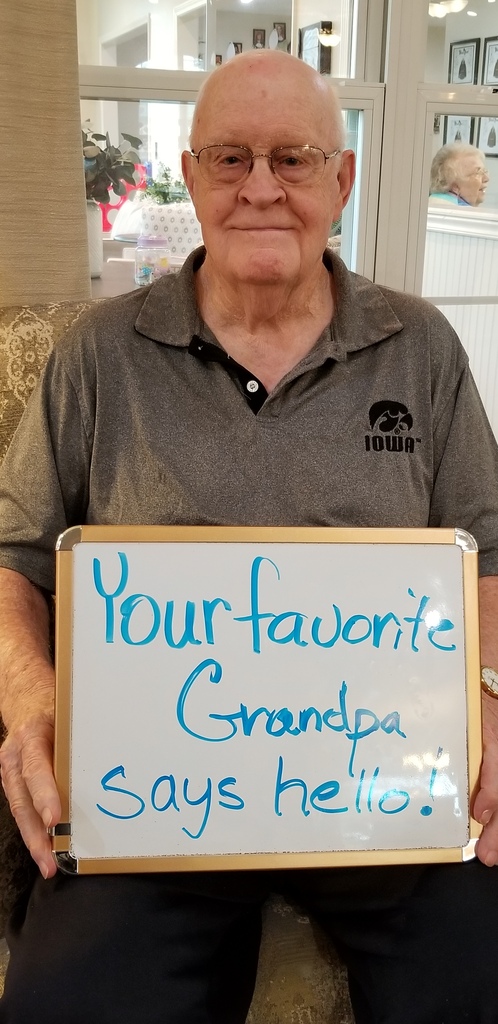 IOWA
Your favorite
Grandpa
says hello!